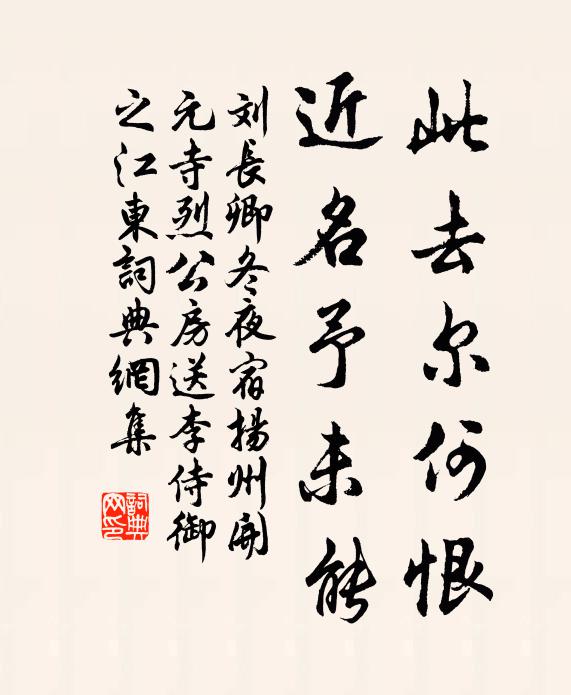 此去尔何恨
近名予未能
刘長卿冬夜宿揚州開
元寺烈公房送李侍御
之江東詞典網集
詞典网印